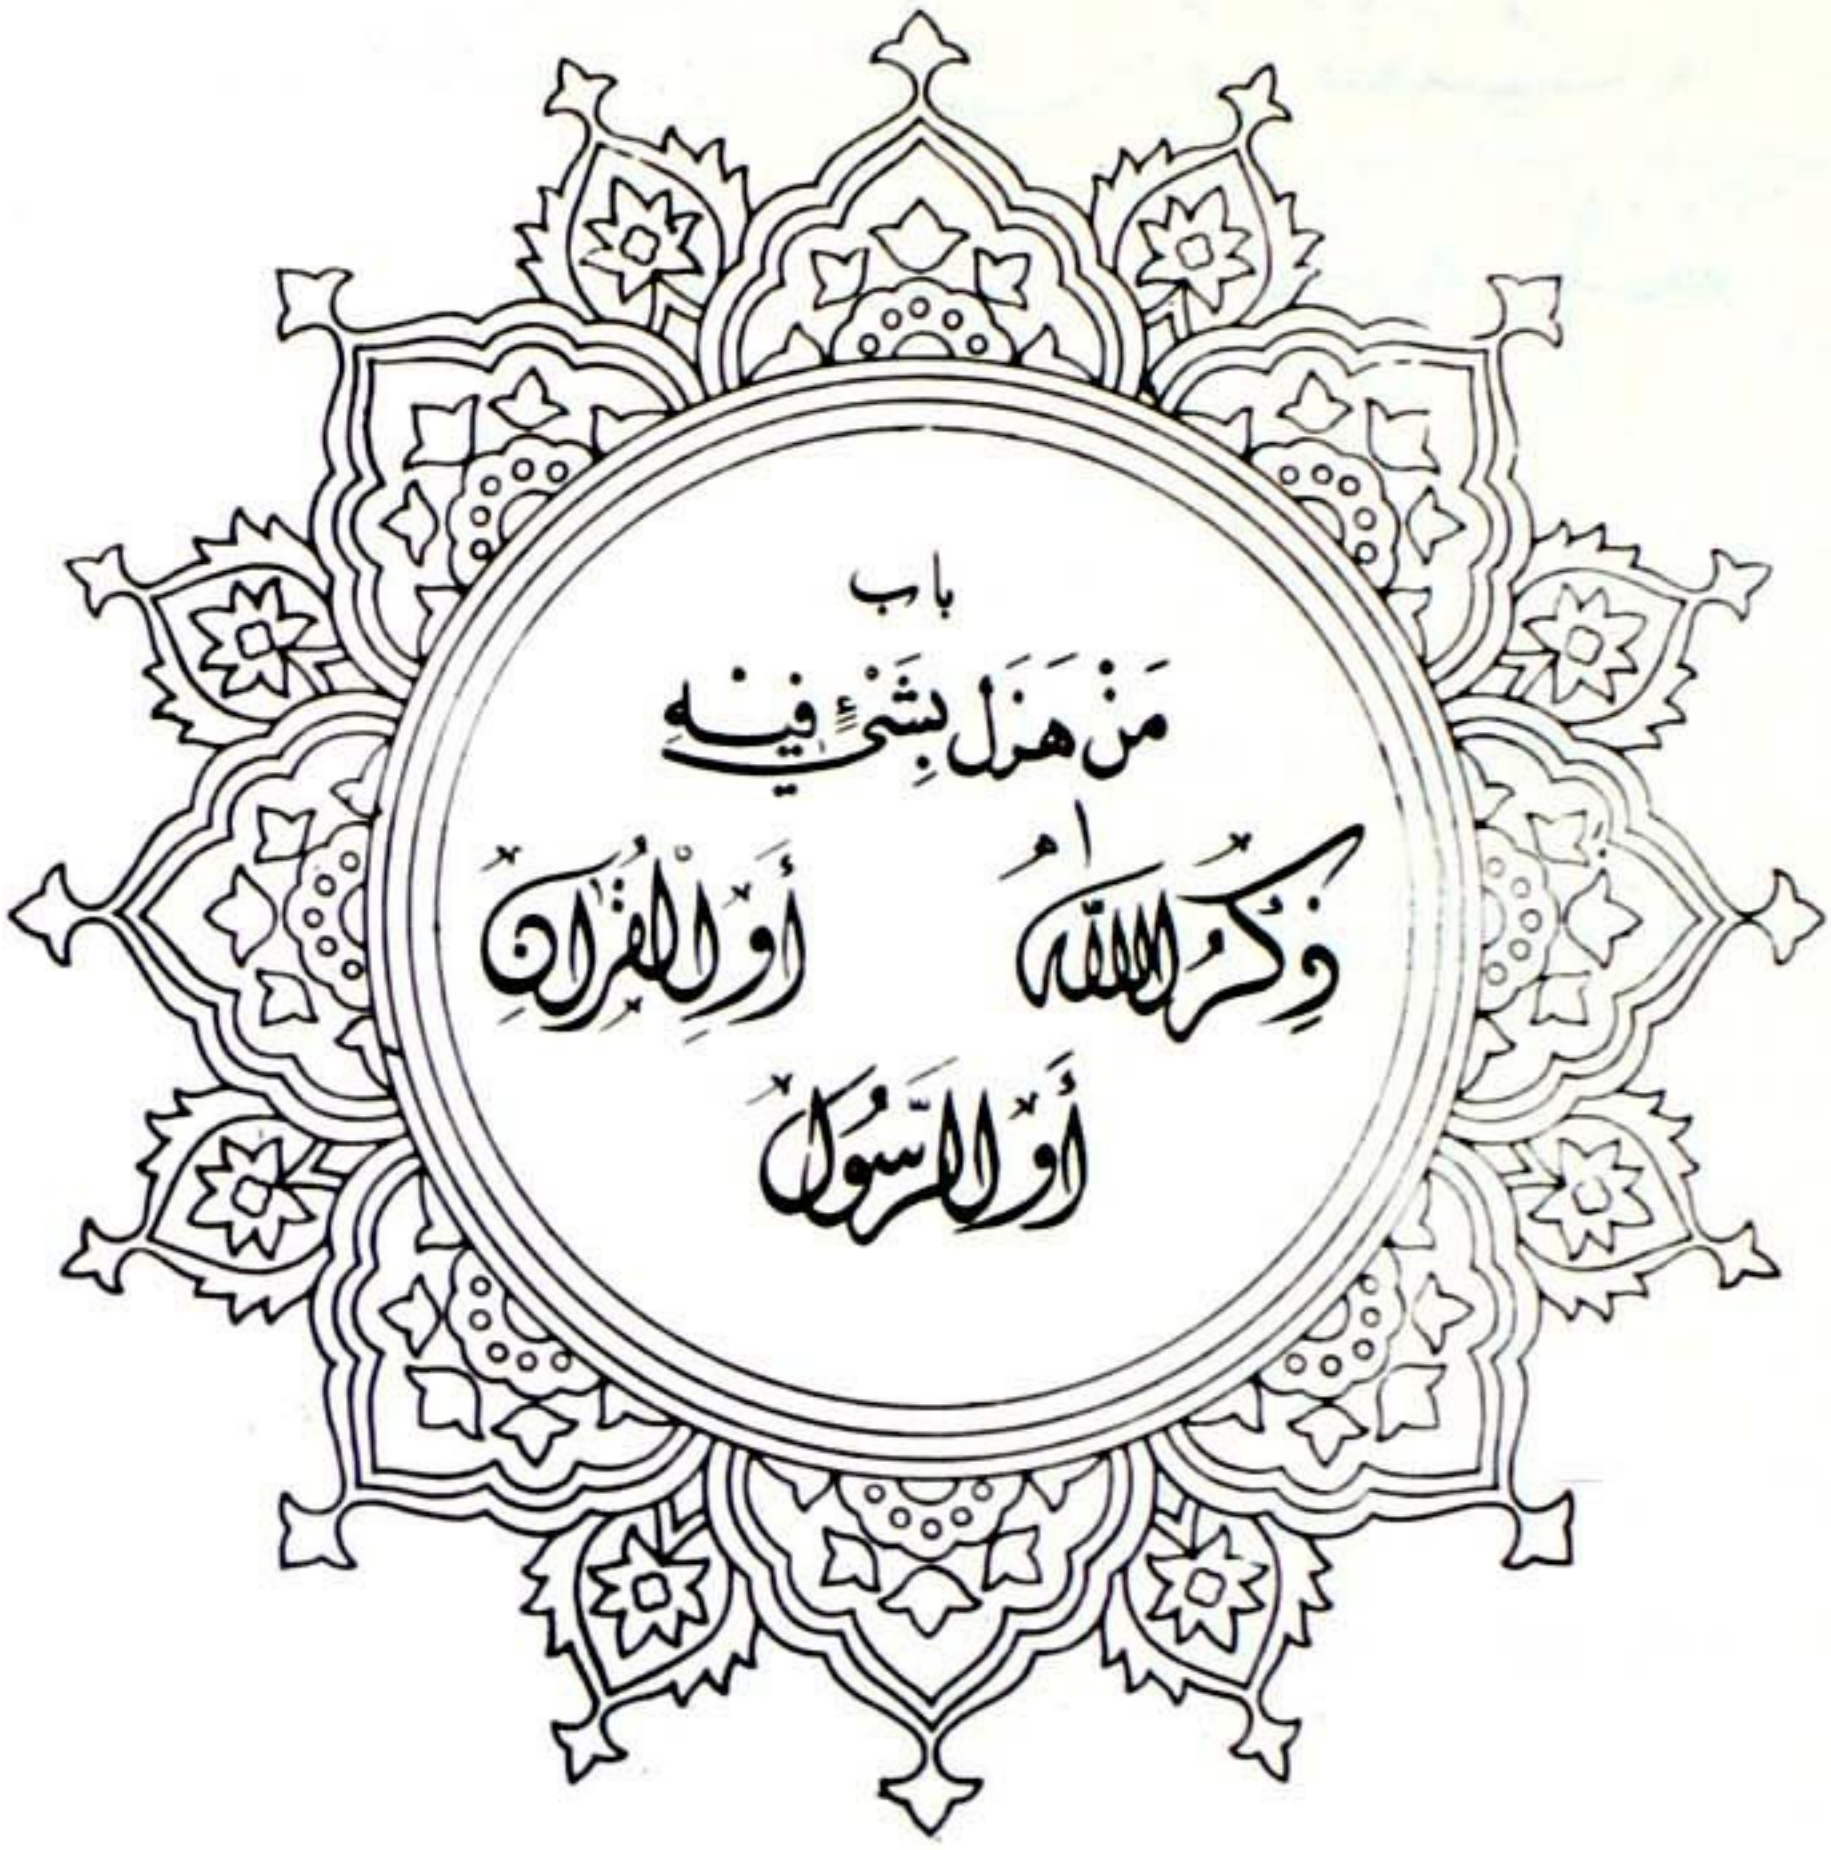 باب
مَنْ هَزَلَ بِشَىْءٍ فِيْهِ
ذِكْرُ اللّٰهِ أَوِ الْقُرْاٰنِ
أَوِ الرَّسُوْلِ